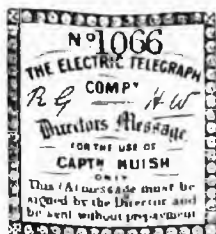 Nº 1066
THE ELECTRIC TELEGRAPH
RG COMPY HW
Directors Message
FOR THE USE OF
CAPTN HUISH
ONLY
This Message must be
signed by the Director and
be sent without prepayment